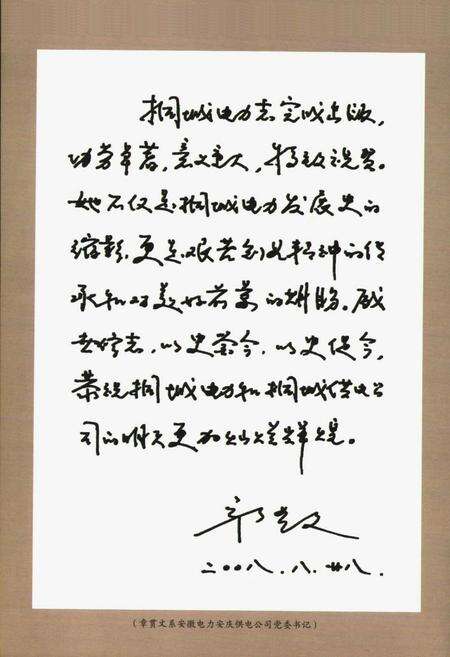 桐城电力志完成出版，
功劳卓著，意义重大，特致祝贺。
她不仅是桐城电力发展史的
缩影，更是艰苦创业精神的传
承和对美好前景的期盼。盛
世修志，以史鉴今，以史促今，
恭祝桐城电力和桐城供电公
司的明天更加灿烂辉煌。
章贯文
二〇〇八.八.廿八.
（章贯文系安徽电力安庆供电公司党委书记）